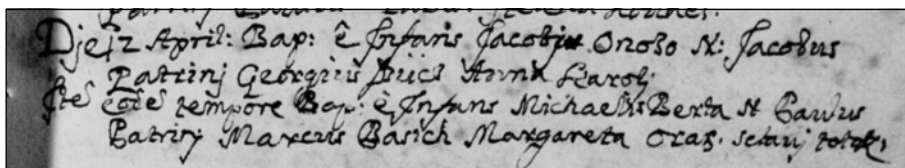 Patrinj
Die 12 April: Bap: ē Infans Jacobj Onoso N: Jacobus
Patrinj Georgius Anna Karolj
Ite eode tempore Bap: ē Infans Michaelis Berta N Paulus
Patrinj Marcus Basich Margareta